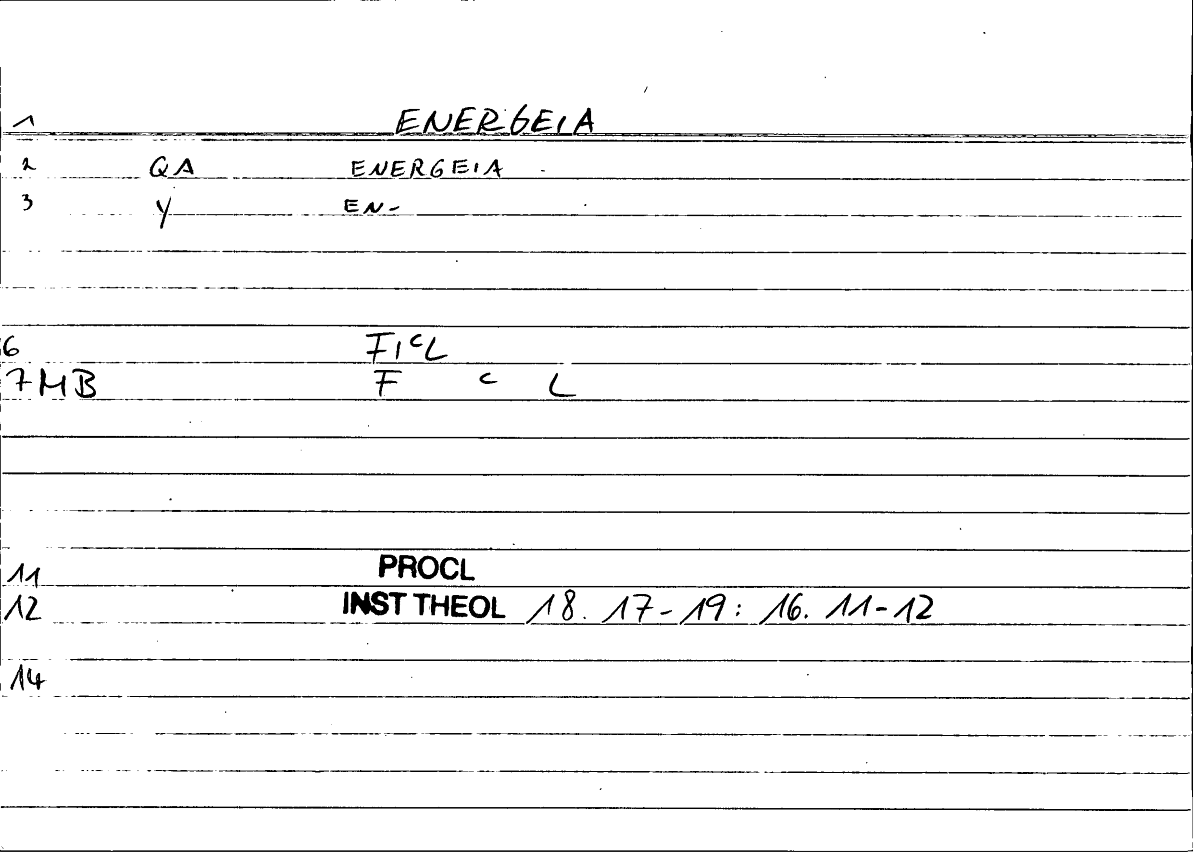 1 ENERGEIA
2 QA ENERGEIA
3 Y EN-
6 FICL
7MB F C L
11 PROCL
12 INST THEOL 18. 17-19: 16. 11-12
14